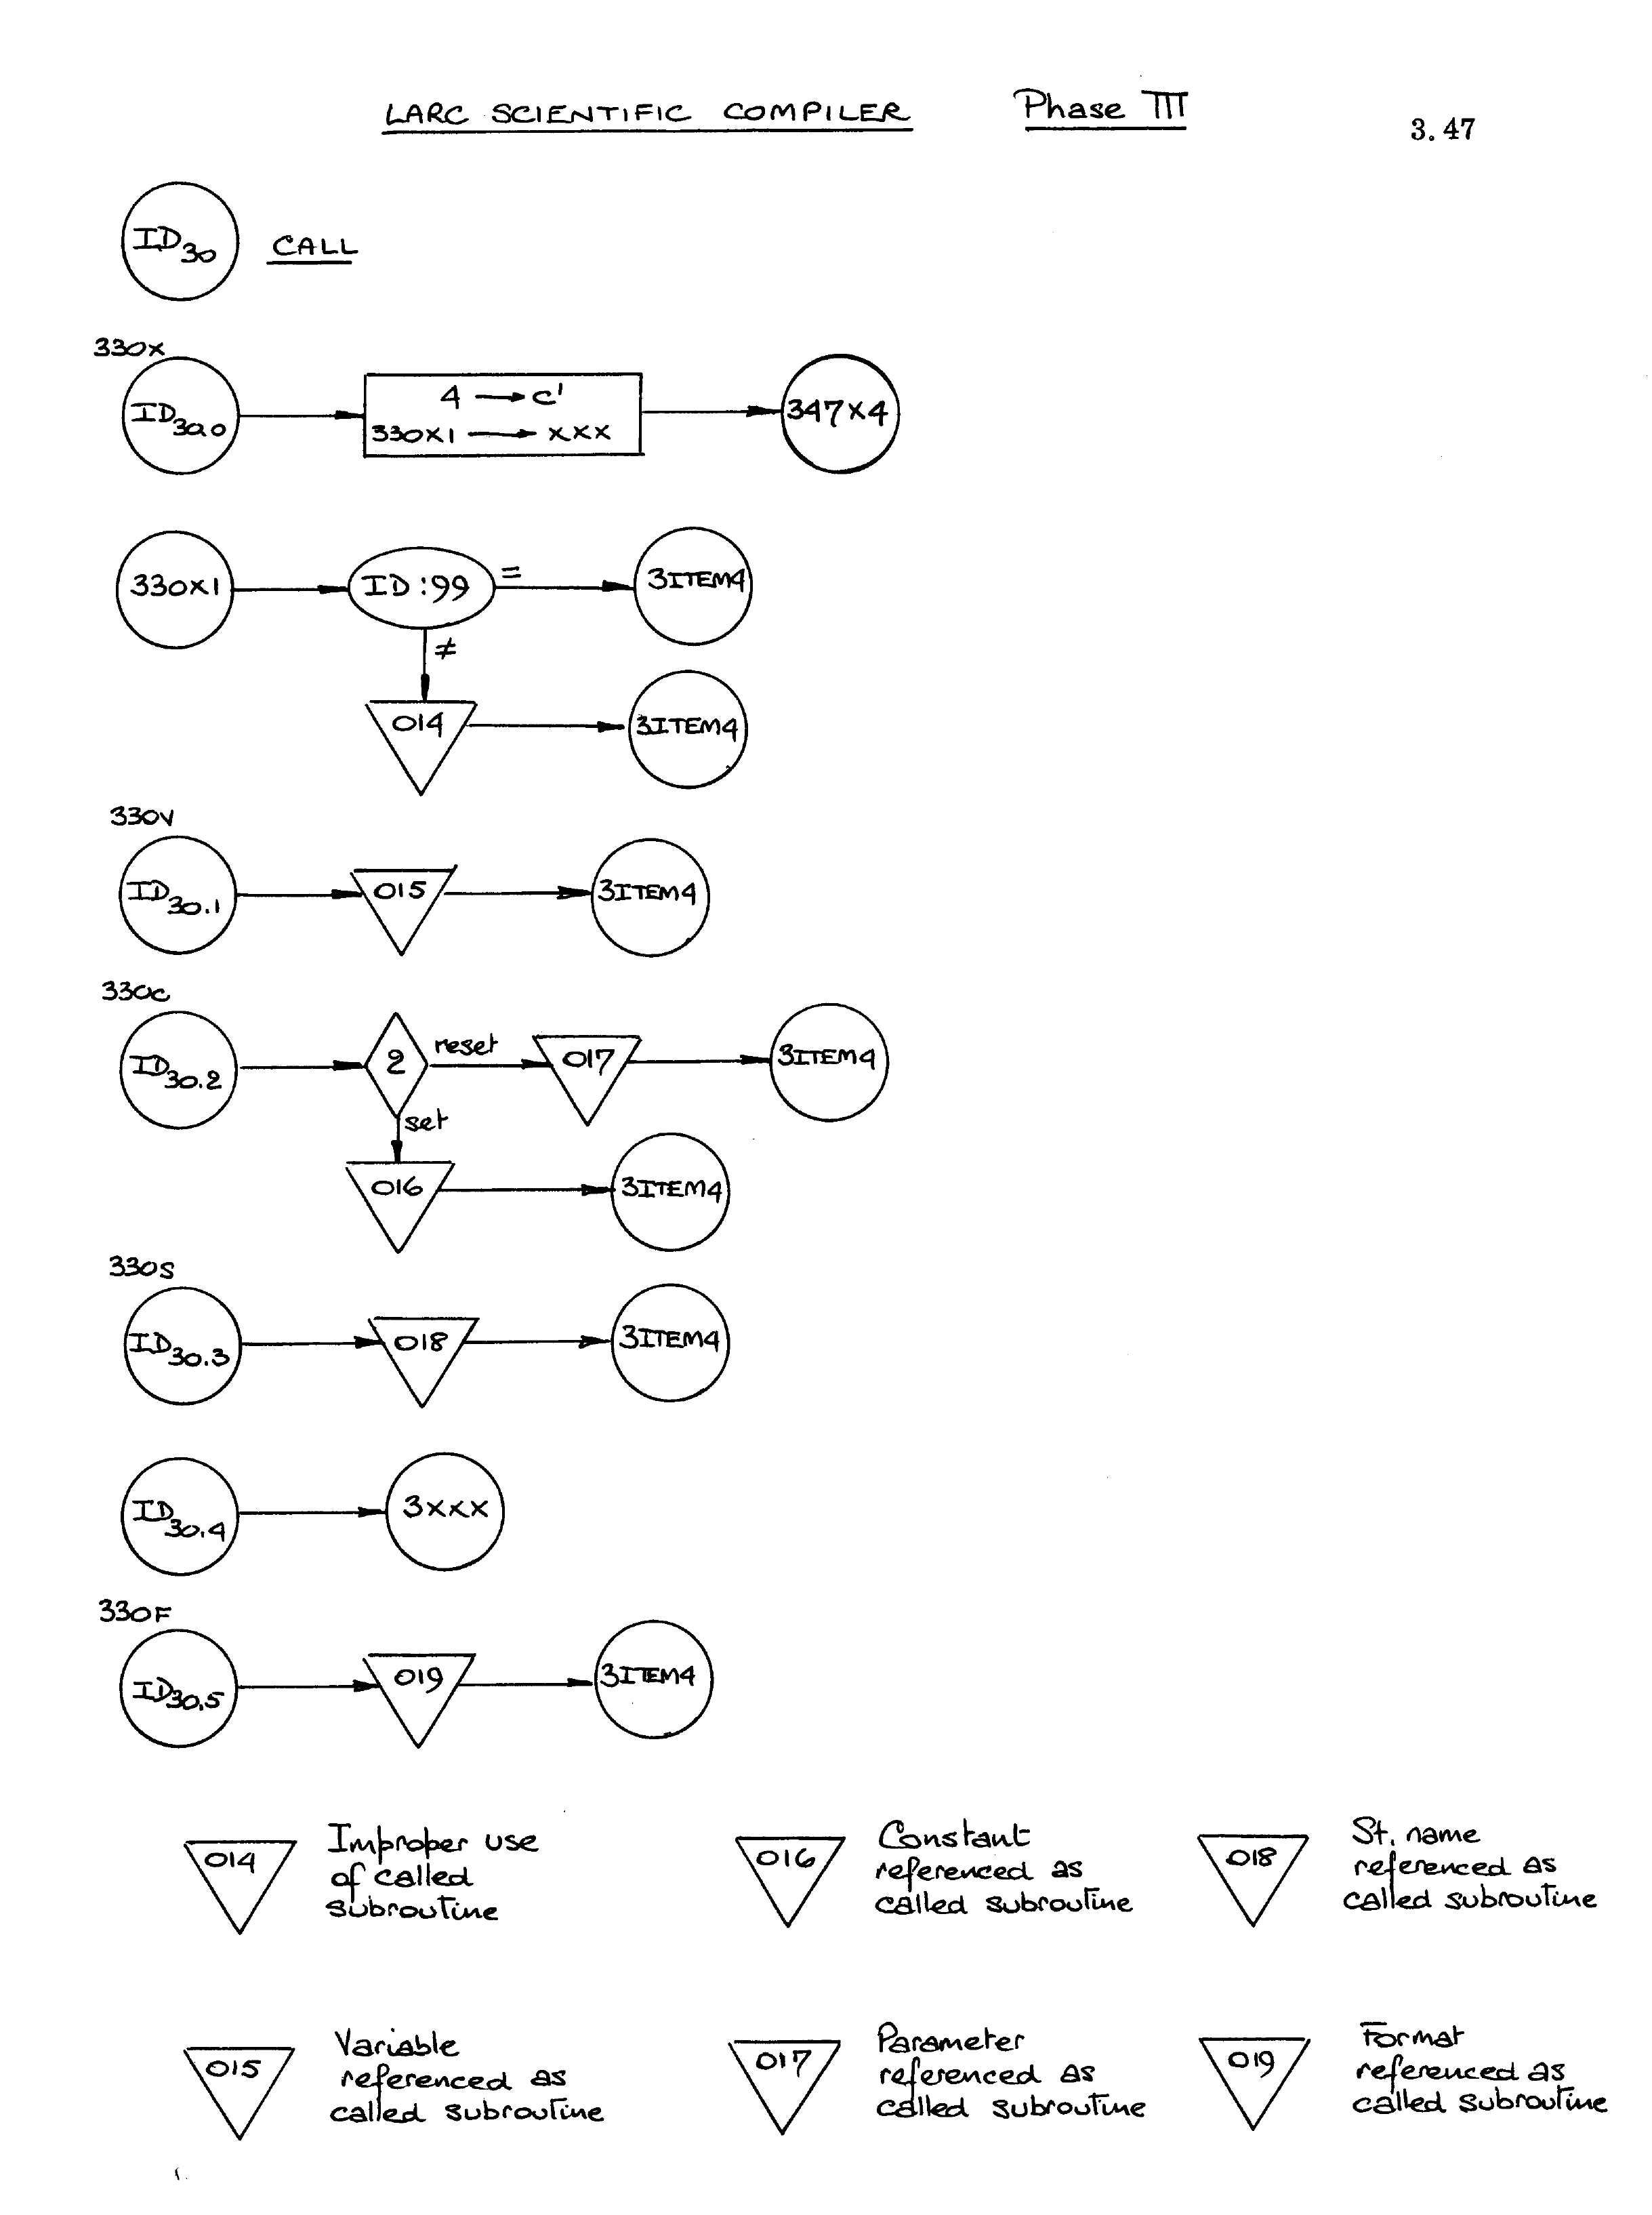 LARC SCIENTIFIC COMPILER Phase III
3.47
ID30 CALL
330X
ID30.0
4 → C'
330X1 → XXX
347X4
330X1
ID:99
=
3ITEM4
≠
014
3ITEM4
330V
ID30.1
015
3ITEM4
330C
ID30.2
2
reset
017
3ITEM4
set
016
3ITEM4
330S
ID30.3
018
3ITEM4
ID30.4
3XXX
330F
ID30.5
019
3ITEM4
014
Improper use
of called
subroutine
016
Constant
referenced as
called subroutine
018
St. name
referenced as
called subroutine
015
Variable
referenced as
called subroutine
017
Parameter
referenced as
called subroutine
019
Format
referenced as
called subroutine